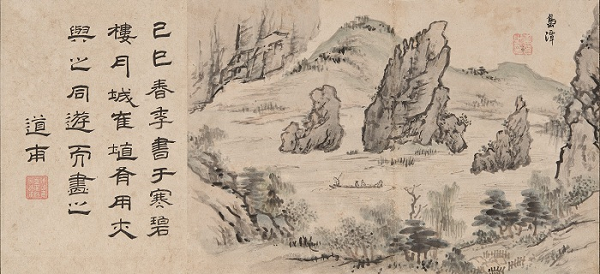 嶌潭
己巳春季書于寒碧
樓月城崔埴有用亦
與之同遊而畫之
道甫